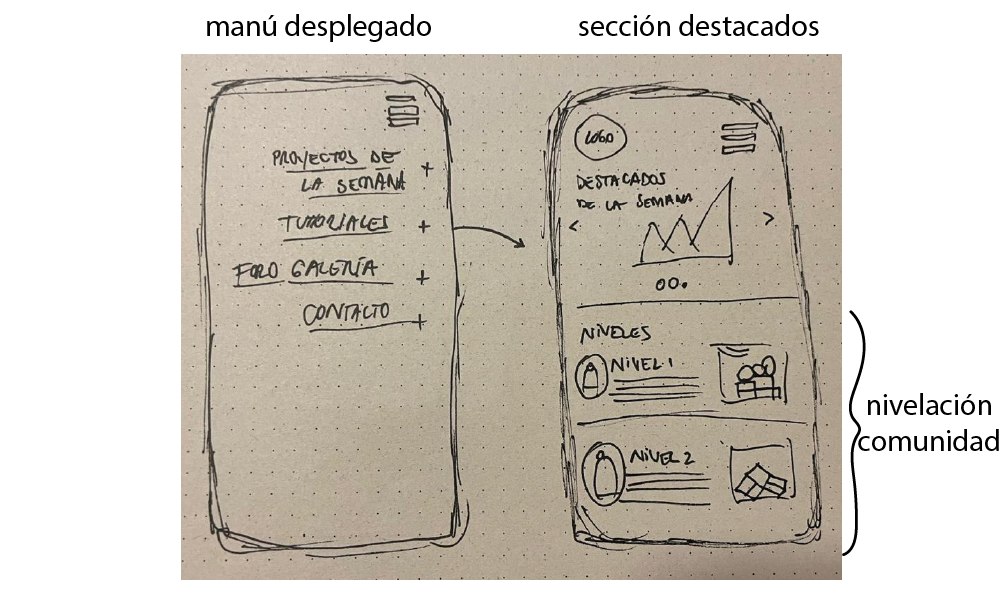 manú desplegado
sección destacados
PROYECTOS DE
LA SEMANA +
TUTORIALES +
FORO GALERÍA +
CONTACTO +
LOGO
DESTACADOS
DE LA SEMANA
< >
NIVELES
NIVEL 1
NIVEL 2
nivelación
comunidad